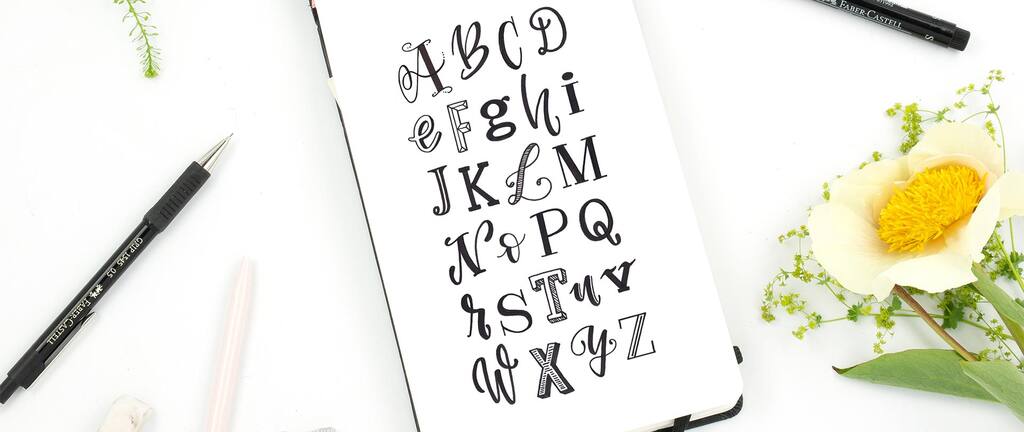 A B C D
e F g h i
J K L M
N o P Q
r S T u v
W X y Z
FABER-CASTELL S
GRIP 1345 0.5 FABER-CASTELL